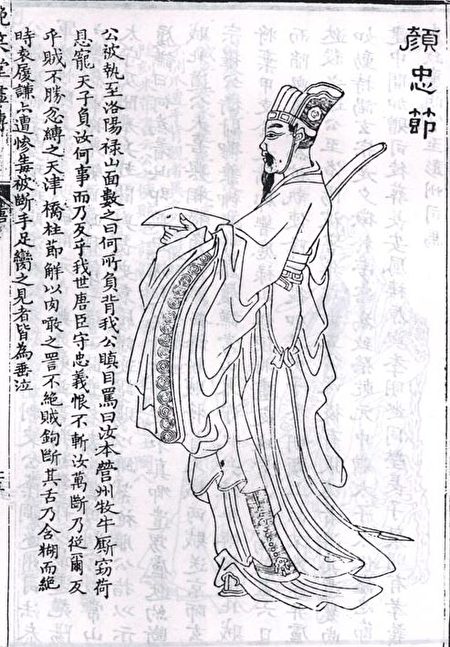 顏忠節
公被執至洛陽禄山面數之曰何所負背我公瞋目罵曰汝本營州牧牛厮竊荷
恩寵天子負汝何事而乃反乎我世唐臣守忠義恨不斬汝萬斷乃從爾反
乎賊不勝忿縛之天津橋柱節解以肉噉之詈不絕賊鉤斷其舌乃含糊而絕
時袁履謙亦遭慘毒被斷手足臠之見者皆為垂泣
晚笑堂畫傳